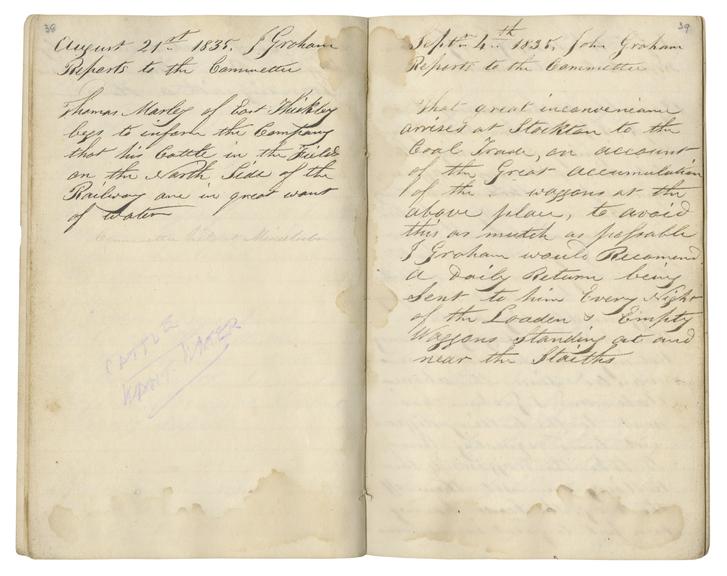 38
August 21st 1835. J Graham
Reports to the Committee
Thomas Marley of East Thickley
begs to inform the Company
that his Cattle in the Fields
on the North Side of the
Railway are in great want
of water
Committee
CATTLE
WANT WATER
39
Septr 4th 1835. John Graham
Reports to the Committee
That great inconvenience
arrises at Stockton to the
Coal Trade, on account
of the Great accumulation
of the waggons at the
above place, to avoid
this as mutch as possable
J Graham would Recomend
a Daily Return being
Sent to him Every Night
of the Loaden & Empty
Waggons Standing at and
near the Staiths